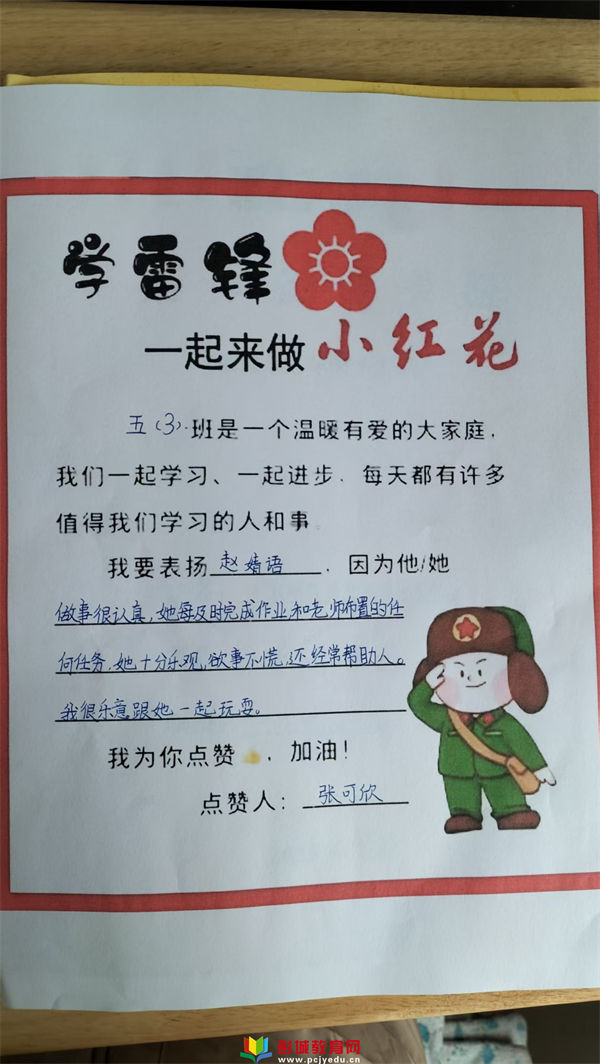 学雷锋
一起来做小红花
五(3)班是一个温暖有爱的大家庭，
我们一起学习、一起进步，每天都有许多
值得我们学习的人和事。
我要表扬赵婧语，因为他/她
做事很认真，她每及时完成作业和老师布置的任
何任务，她十分乐观，欲事不慌，还经常帮助人。
我很乐意跟她一起玩耍。
我为你点赞，加油！
点赞人：张可欣
射城教育网
www.pcjyedu.cn